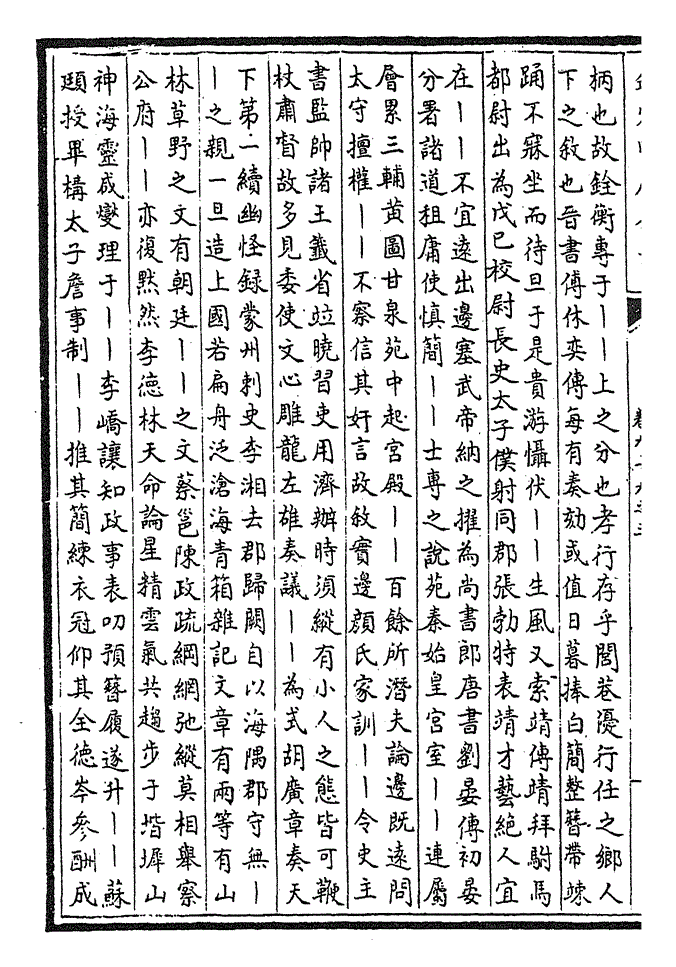 柄也故銓衡專于丨丨上之分也孝行存乎閭巷優行任之鄉人
下之敘也晉書傅休奕傳每有奏劾或值日暮捧白簡整簪帶竦
踊不寐坐而待旦于是貴游懾伏丨丨生風又索靖傳靖拜駙馬
都尉出為戊巳校尉長史太子僕射同郡張勃特表靖才藝絕人宜
在丨丨不宜遠出邊塞武帝納之擢為尚書郎唐書劉晏傳初晏
分署諸道租庸使慎簡丨丨士專之說苑秦始皇宮室丨丨連屬
層累三輔黃圖甘泉苑中起宮殿丨丨百餘所潛夫論邊既遠問
太守擅權丨丨不察信其奸言故敘實邊顏氏家訓丨丨令史主
書監帥諸王籤省竝曉習吏用濟辦時須縱有小人之態皆可鞭
杖肅督故多見委使文心雕龍左雄奏議丨丨為式胡廣章奏天
下第一續幽怪録蒙州刺史李湘去郡歸闕自以海隅郡守無丨
丨之親一旦造上國若扁舟泛滄海青箱雜記文章有兩等有山
林草野之文有朝廷丨丨之文蔡邕陳政疏綱網弛縱莫相舉察
公府丨丨亦復黙然李德林天命論星精雲氣共趨步于堦墀山
神海靈咸燮理于丨丨李嶠讓知政事表叨預簪履遂升丨丨蘇
頲授畢構太子詹事制丨丨推其簡練衣冠仰其全德岑參酬成